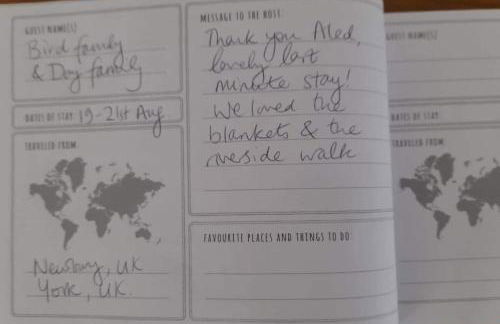 GUEST NAME(S)
Bird family
& Dey family
DATES OF STAY: 19-21st Aug
TRAVELED FROM:
Newbury, UK
York, UK.
MESSAGE TO THE HOST:
Thank you Aled,
lovely last
minute stay!
We loved the
blankets & the
riverside walk
FAVOURITE PLACES AND THINGS TO DO:
GUEST NAME(S)
DATES OF STAY:
TRAVELED FROM: